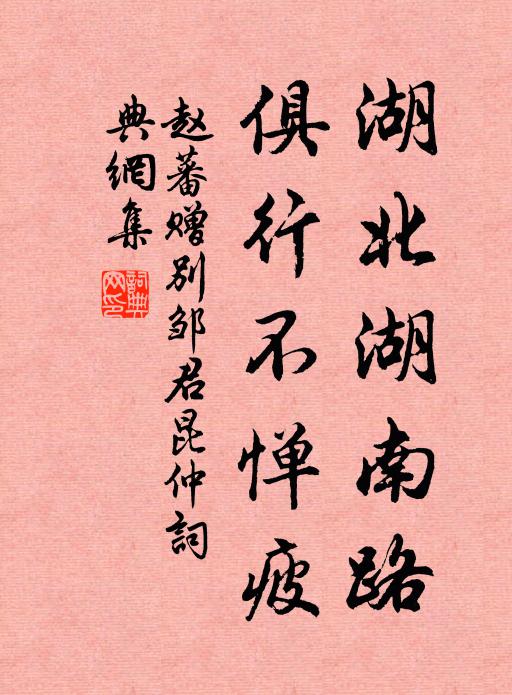 湖北湖南路
俱行不惮疲
赵蕃赠别邹君昆仲詞
典網集
詞典
网印